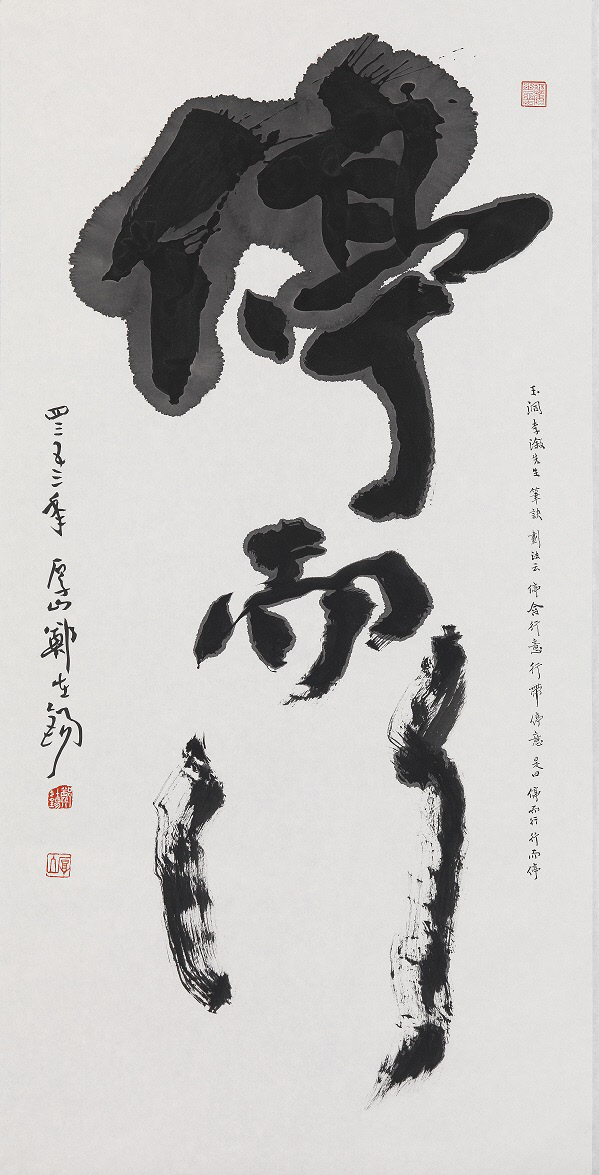 停而行
玉洞李漵先生筆訣劃法云停含行意行帶停意是曰停而行行而停
四三五二季 厚山鄭在錫